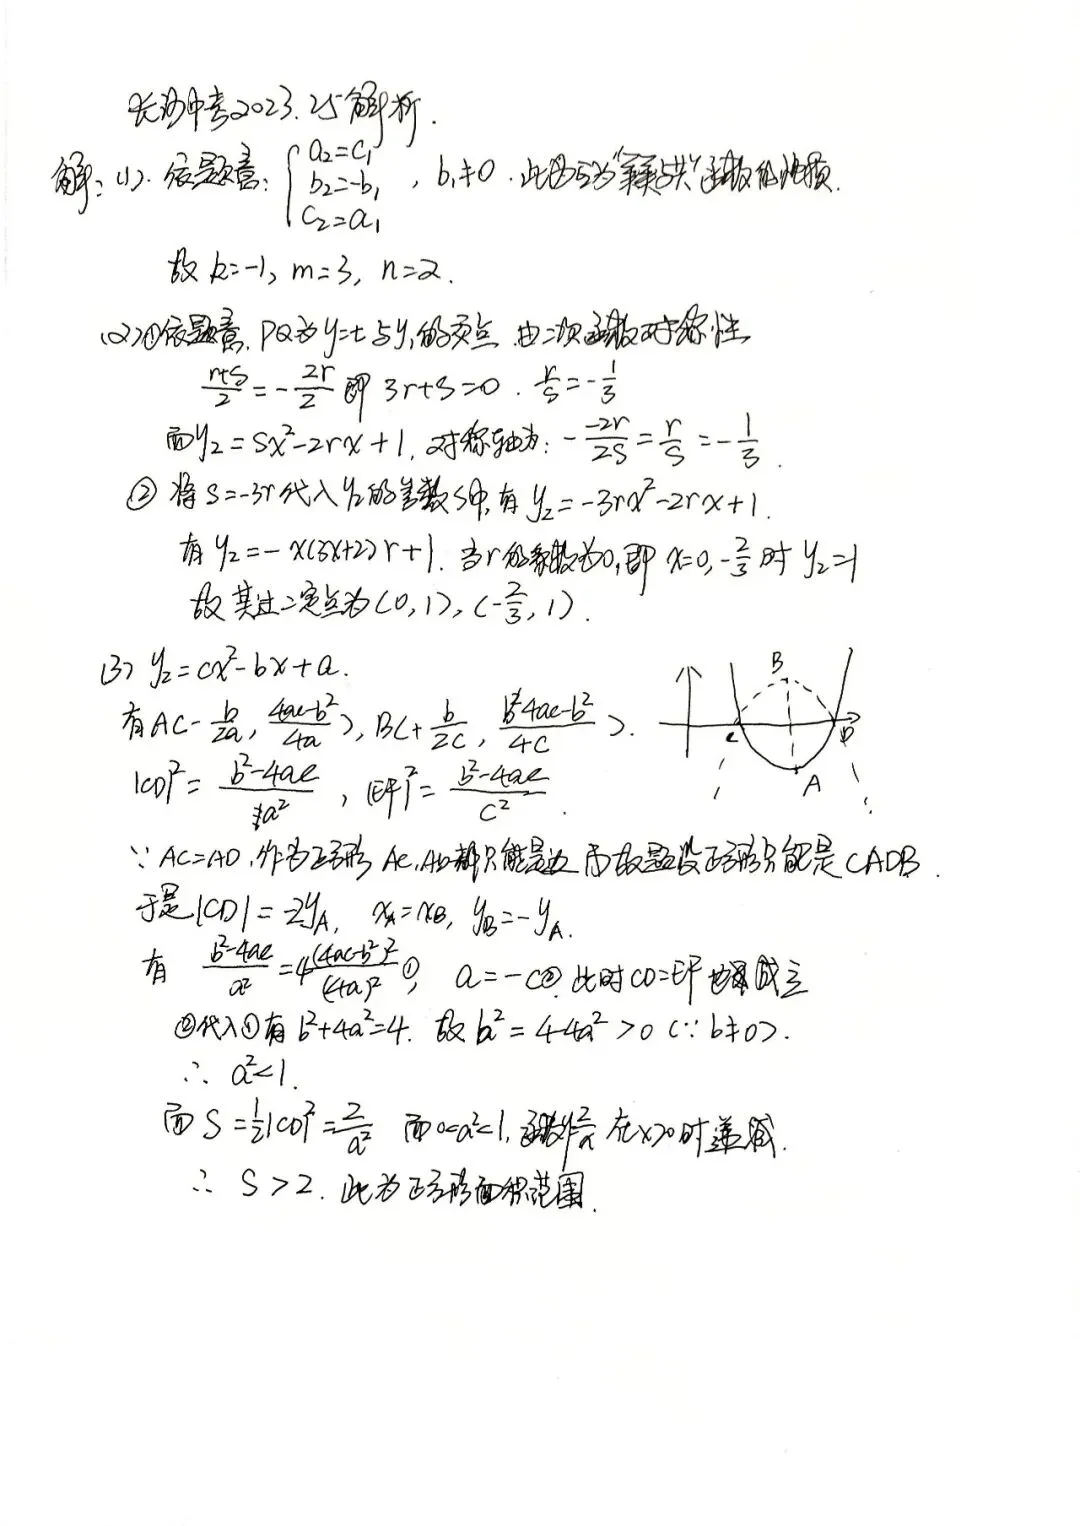 长沙中考2023.25解析.
解:(1).依题意:{a₂=c₁ b₂=-b₁ c₂=a₁ ,b₁≠0.此为互为"美美与共"函数的性质.
故k=-1, m=3, n=2.
(2)①依题意,PQ为y=t与y₁的交点.由二次函数对称性
(r+s)/2=-2r/2 即 3r+s=0. r/s=-1/3
而y₂=sx²-2rx+1,对称轴为:-(-2r)/2s=r/s=-1/3.
②将s=-3r代入y₂的参数s中,有y₂=-3rx²-2rx+1.
有y₂=-x(3x+2)r+1.当r的系数为0,即x=0,-2/3时y₂=1
故其过二定点为(0,1),(-2/3,1).
(3) y₂=cx²-bx+a.
有A(-b/2a,(4ac-b²)/4a),B(+b/2c,(4ac-b²)/4c).
|CD|²=(b²-4ac)/a²,|EF|²=(b²-4ac)/c².
B
C
D
A
∵AC=AD,作为正方形AC,AD都只能是边 而故题设正方形只能是CADB.
于是|CD|=2y_A, x_A=x_B, y_B=-y_A.
有 (b²-4ac)/a²=4(4ac-b²)²/(4a)²①, a=-c②.此时CD=EF 成立
②代入①有b²+4a²=4.故b²=4-4a²>0(∵b≠0).
∴a²<1.
而S=½|CD|²=2/a² 而0<a²<1,函数y=2/x在x>0时递减.
∴S>2.此为正方形面积范围.